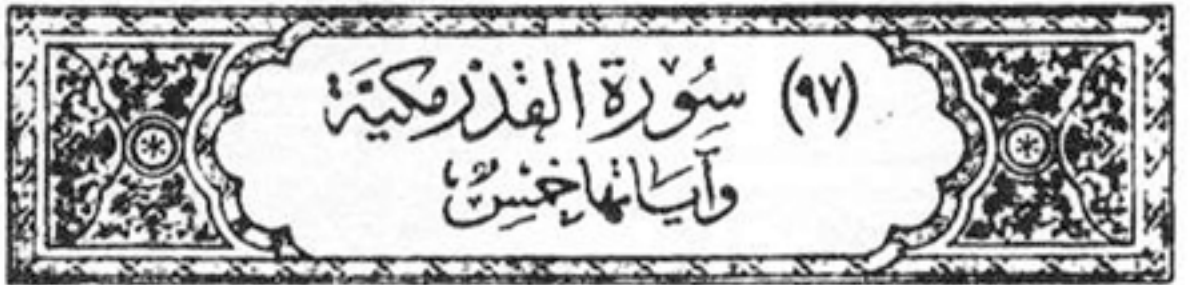 (٩٧) سُوْرَة القَدْرْ مَكيَّة
وَآيَاتهَا خمْسٌ